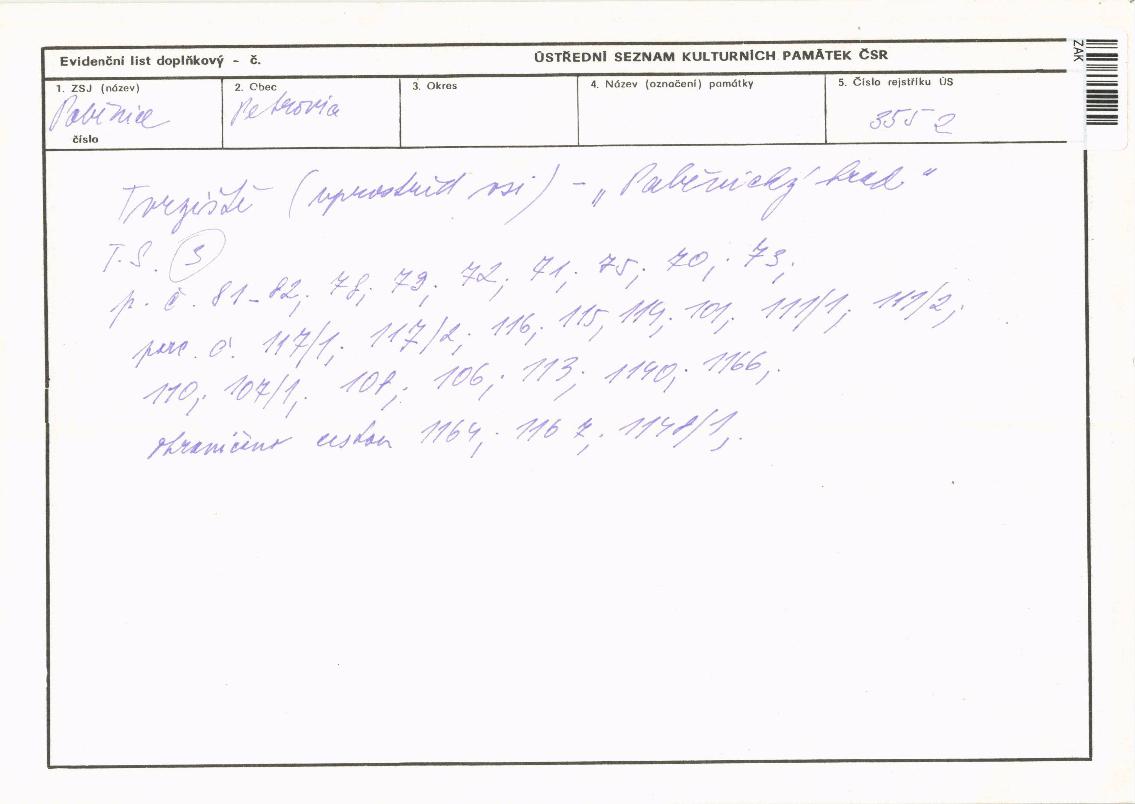 Evidenční list doplňkový - č.
ÚSTŘEDNÍ SEZNAM KULTURNÍCH PAMÁTEK ČSR
ZAK
1. ZSJ (název)
2. Obec
3. Okres
4. Název (označení) památky
5. Číslo rejstříku ÚS
Paběnice
Petrovia
3552
číslo
Tvrziště (uprostřed vsi) - „Paběnický hrad"
T.S. 3
p. č. 81-82; 78; 79; 72; 71; 75; 70; 73;
parc. č. 117/1; 117/2; 116; 115; 114; 101; 111/1; 111/2;
110; 107/1; 108; 106; 113; 1140; 1166;
ohraničeno cestou 1164; 1167; 1148/1;